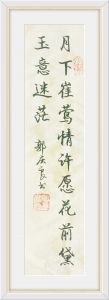 月下崔莺情许愿花前黛
玉意迷茫
郭庆良书